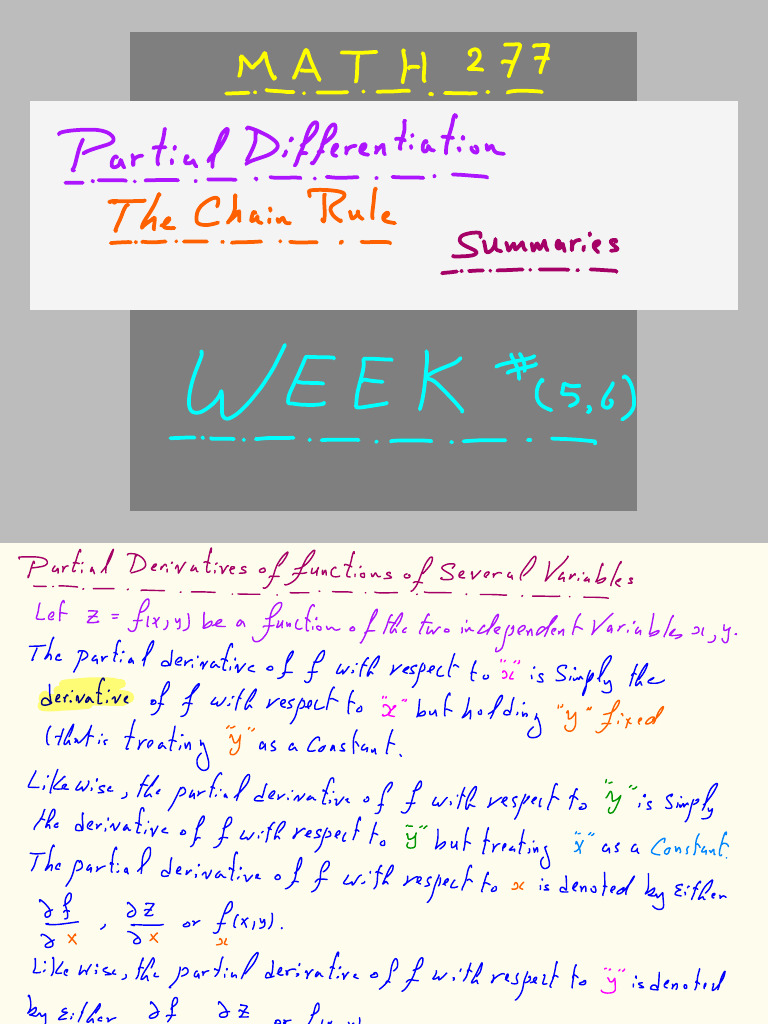 MATH 277
Partial Differentiation
The Chain Rule
Summaries
WEEK #(5,6)
Partial Derivatives of functions of Several Variables
Let z = f(x,y) be a function of the two independent Variables x, y.
The partial derivative of f with respect to "x" is Simply the
derivative of f with respect to "x" but holding "y" fixed
(that is treating "y" as a Constant.
Likewise, the partial derivative of f with respect to "y" is Simply
the derivative of f with respect to "y" but treating "x" as a Constant.
The partial derivative of f with respect to x is denoted by Either
∂f/∂x , ∂z/∂x or f_x(x,y).
Likewise, the partial derivative of f with respect to "y" is denoted
by Either ∂f ∂z or f(x,y)